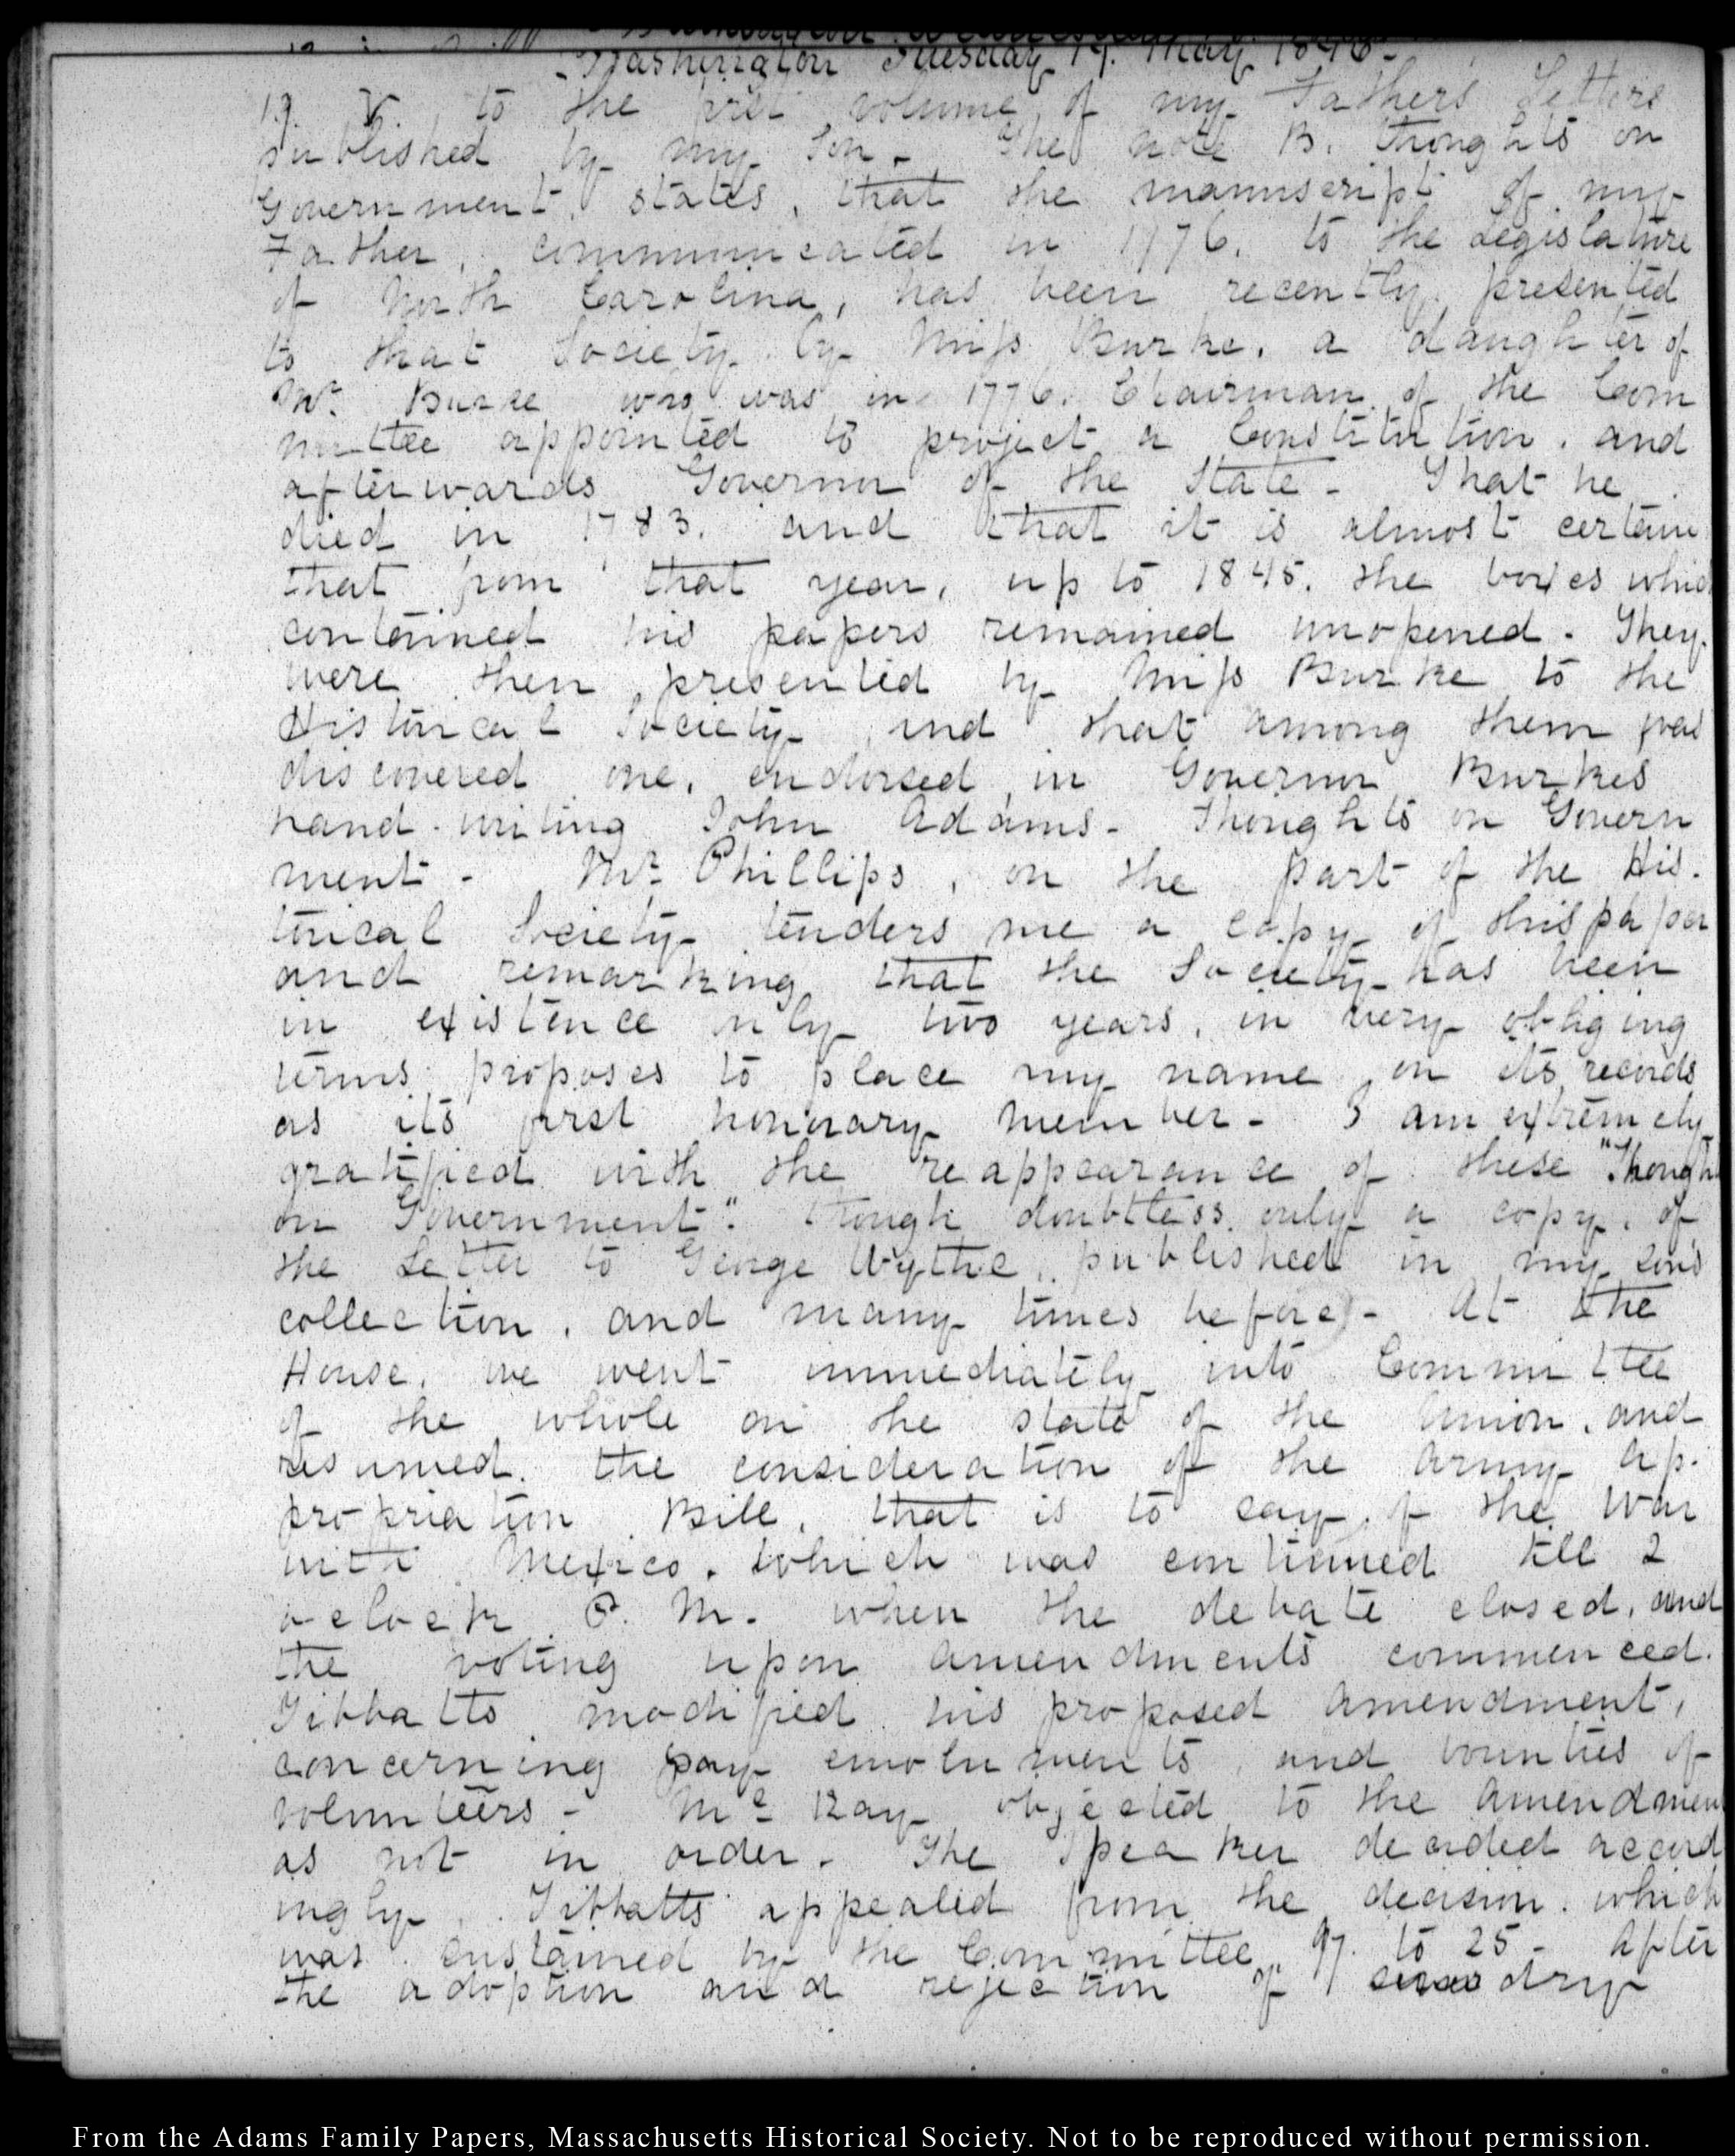 Washington Tuesday 19. May 1846-
19. V. to the first volume of my Fathers Letters
published by my Son- The note B. thoughts on
Government, states, that the manuscript of my
Father, communicated in 1776. to the Legislature
of North Carolina, has been recently presented
to that Society by Miss Burke, a daughter of
Mr. Burke who was in 1776. Chairman of the Com
mittee appointed to project a Constitution. and
afterwards Governor of the State- That he
died in 1783. and that it is almost certain
that from that year, up to 1845. the boxes which
contained his papers remained unopened. They
were then presented by Miss Burke to the
Historical Society and that among them was
discovered one, endorsed in Governor Burkes
hand-writing John Adams- Thoughts on Govern
ment- Mr. Phillips, on the part of the His-
torical Society tenders me a copy of this paper
and remarking that the Society has been
in existence only two years, in very obliging
terms proposes to place my name on its records
as its first honorary member- I am extremely
gratified with the reappearance of these "Thoughts
on Government". though doubtless only a copy, of
the Letter to George Wythe, published in my sons
collection, and many times before)- At the
House, we went immediately into Committee
of the whole on the state of the Union, and
resumed the consideration of the army ap-
propriation Bill, that is to say of the War
with Mexico. which was continued till 2
o'clock P. M. when the debate closed, and
the voting upon amendments commenced.
Tibbatts modified his proposed amendment,
concerning pay emoluments, and bounties of
volunteers- McKay objected to the amendment
as not in order. The Speaker decided accord
ingly. Tibbatts appealed from the decision. which
was sustained by the Committee 97. to 25- After
the adoption and rejection of sundry
From the Adams Family Papers, Massachusetts Historical Society. Not to be reproduced without permission.